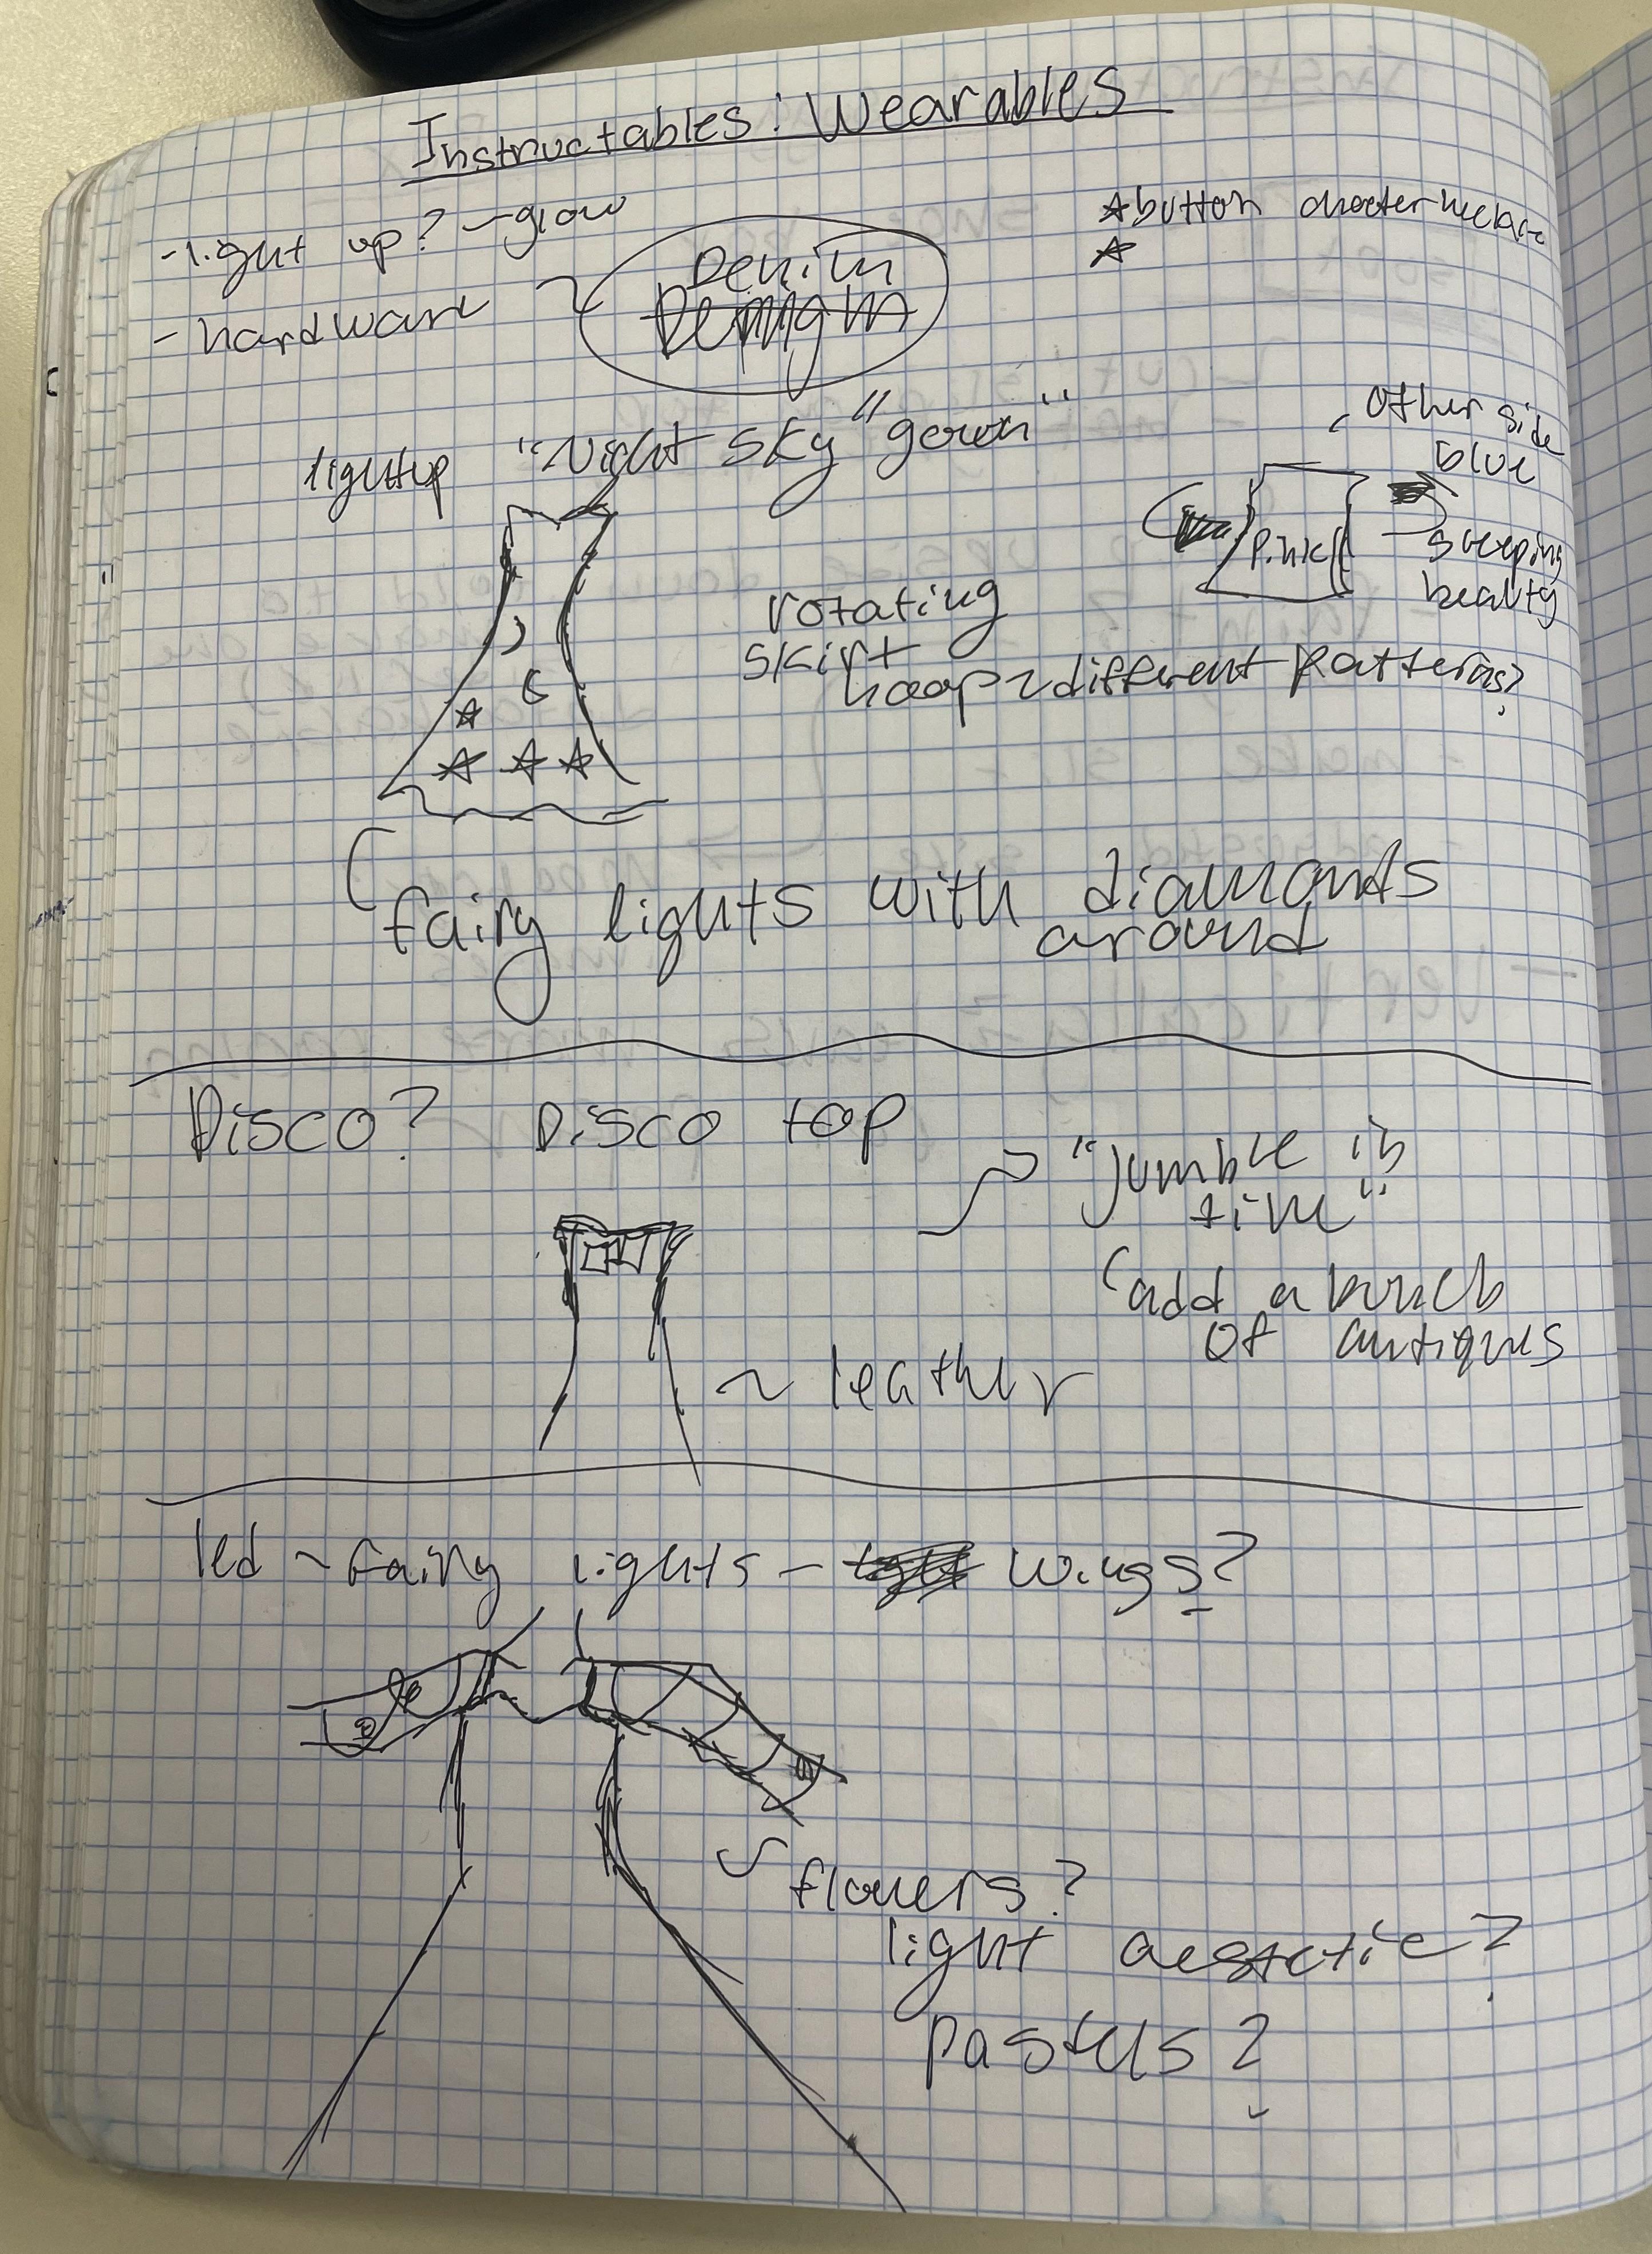 Instructables: Wearables
- light up? - glow
- hardware ~
Denim
☆ button
☆
lightup "Night sky" "gown"
other side
blue
Pink
sleeping
beauty
rotating
skirt
hoop ~ different patterns?
fairy lights with diamonds
around
Disco? Disco top
"jumble in
time"
add a bunch
of antiques
~ leather
led ~ fairy lights - wings?
flowers?
light aestetic?
pastels?